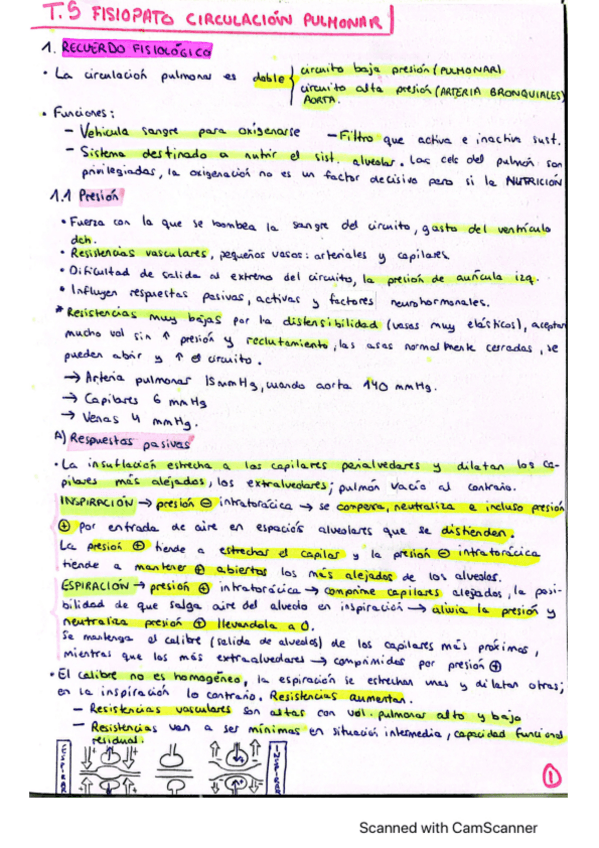 T.5 FISIOPATO CIRCULACIÓN PULMONAR
1. RECUERDO FISIOLÓGICO
· La circulación pulmonar es doble { circuito baja presión (PULMONAR)
circuito alta presión (ARTERIA BRONQUIALES)
AORTA.
· Funciones:
- Vehicula sangre para oxigenarse - Filtro que activa e inactiva sust.
- Sistema destinado a nutrir el sist. alveolar. Las cels del pulmón son
privilegiadas, la oxigenación no es un factor decisivo pero si la NUTRICIÓN
1.1 Presión
· Fuerza con la que se bombea la sangre del circuito, gasto del ventrículo
dch.
· Resistencias vasculares, pequeños vasos: arteriales y capilares.
· Dificultad de salida al extremo del circuito, la presión de aurícula izq.
· Influyen respuestas pasivas, activas y factores neurohormonales.
* Resistencias muy bajas por la distensibilidad (vasos muy elásticos), aceptan
mucho vol sin ↑ presión y reclutamiento, las asas normalmente cerradas, se
pueden abrir y ↑ el circuito.
→ Arteria pulmonar 15 mmHg, cuando aorta 140 mmHg.
→ Capilares 6 mmHg
→ Venas 4 mmHg.
A) Respuestas pasivas
· La insuflación estrecha a los capilares perialvedares y dilatan los ca-
pilares más alejados, los extralveolares; pulmón vacío al contrario.
INSPIRACIÓN → presión ⊖ intratorácica → se compensa, neutraliza e incluso presión
⊕ por entrada de aire en espacios alveolares que se distienden.
La presión ⊕ tiende a estrechar el capilar y la presión ⊖ intratorácica
tiende a mantener ⊕ abiertos los más alejados de los alveolos.
ESPIRACIÓN → presión ⊕ intratorácica → comprime capilares alejados, la posi-
bilidad de que salga aire del alveolo en inspiración → alivia la presión y
neutraliza presión ⊕ llevandola a 0.
Se mantenga el calibre (salida de alveolos) de los capilares más próximos,
mientras que los más extraalvedares → comprimidos por presión ⊕
· El calibre no es homogéneo, la espiración se estrechan unas y dilatan otras;
en la inspiración lo contrario. Resistencias aumentan.
- Resistencias vasculares son altas con vol. pulmonar alto y bajo
- Resistencias van a ser mínimas en situación intermedia, capacidad funcional
residual.
ESPIRAR
INSPIRAR
1
Scanned with CamScanner